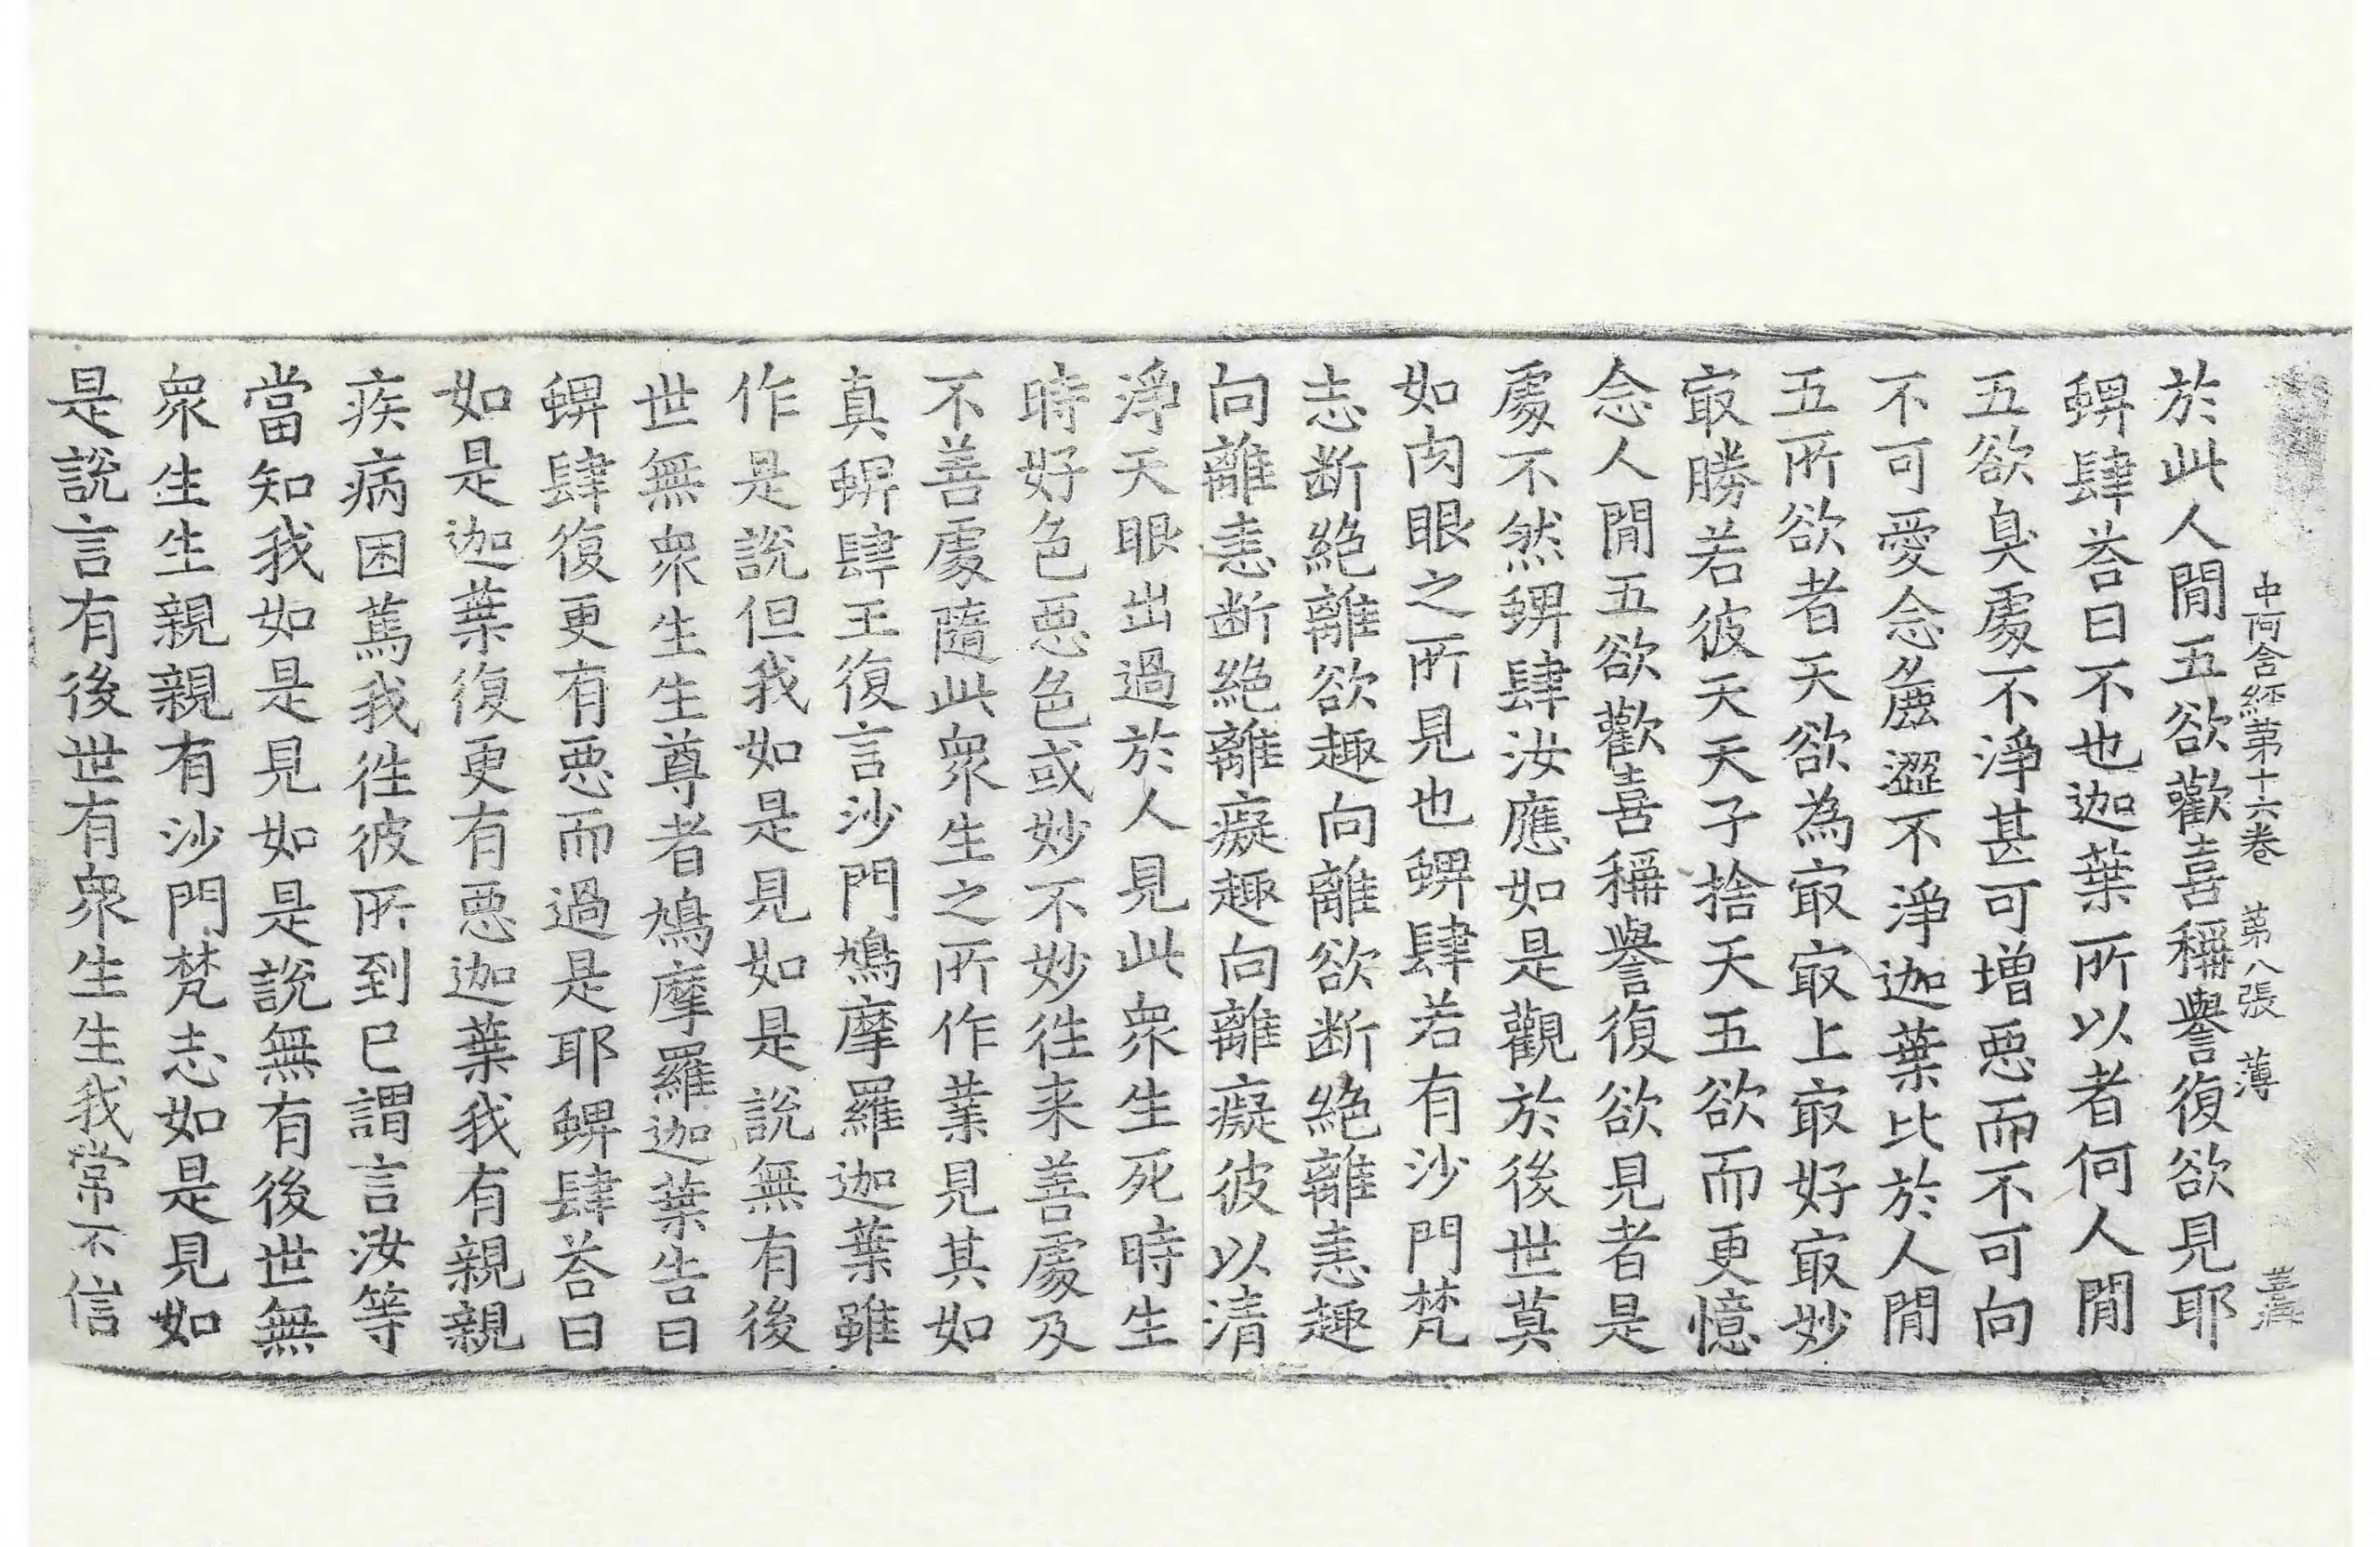 中阿含經第十六卷 第八張 薄
於此人閒五欲歡喜稱譽復欲見耶
蜱肆荅曰不也迦葉所以者何人閒
五欲臭處不淨甚可增惡而不可向
不可愛念麁澀不淨迦葉比於人閒
五所欲者天欲為冣冣上冣好冣妙
冣勝若彼天天子捨天五欲而更憶
念人閒五欲歡喜稱譽復欲見者是
處不然蜱肆汝應如是觀於後世莫
如肉眼之所見也蜱肆若有沙門梵
志断絕離欲趣向離欲断絕離恚趣
向離恚断絕離癡趣向離癡彼以清
淨天眼出過於人見此衆生死時生
時好色惡色或妙不妙往来善處及
不善處隨此衆生之所作業見其如
真蜱肆王復言沙門鳩摩羅迦葉雖
作是說但我如是見如是說無有後
世無衆生生尊者鳩摩羅迦葉告曰
蜱肆復更有惡而過是耶蜱肆荅曰
如是迦葉復更有惡迦葉我有親親
疾病困篤我往彼所到已謂言汝等
當知我如是見如是說無有後世無
衆生生親親有沙門梵志如是見如
是說言有後世有衆生生我常不信